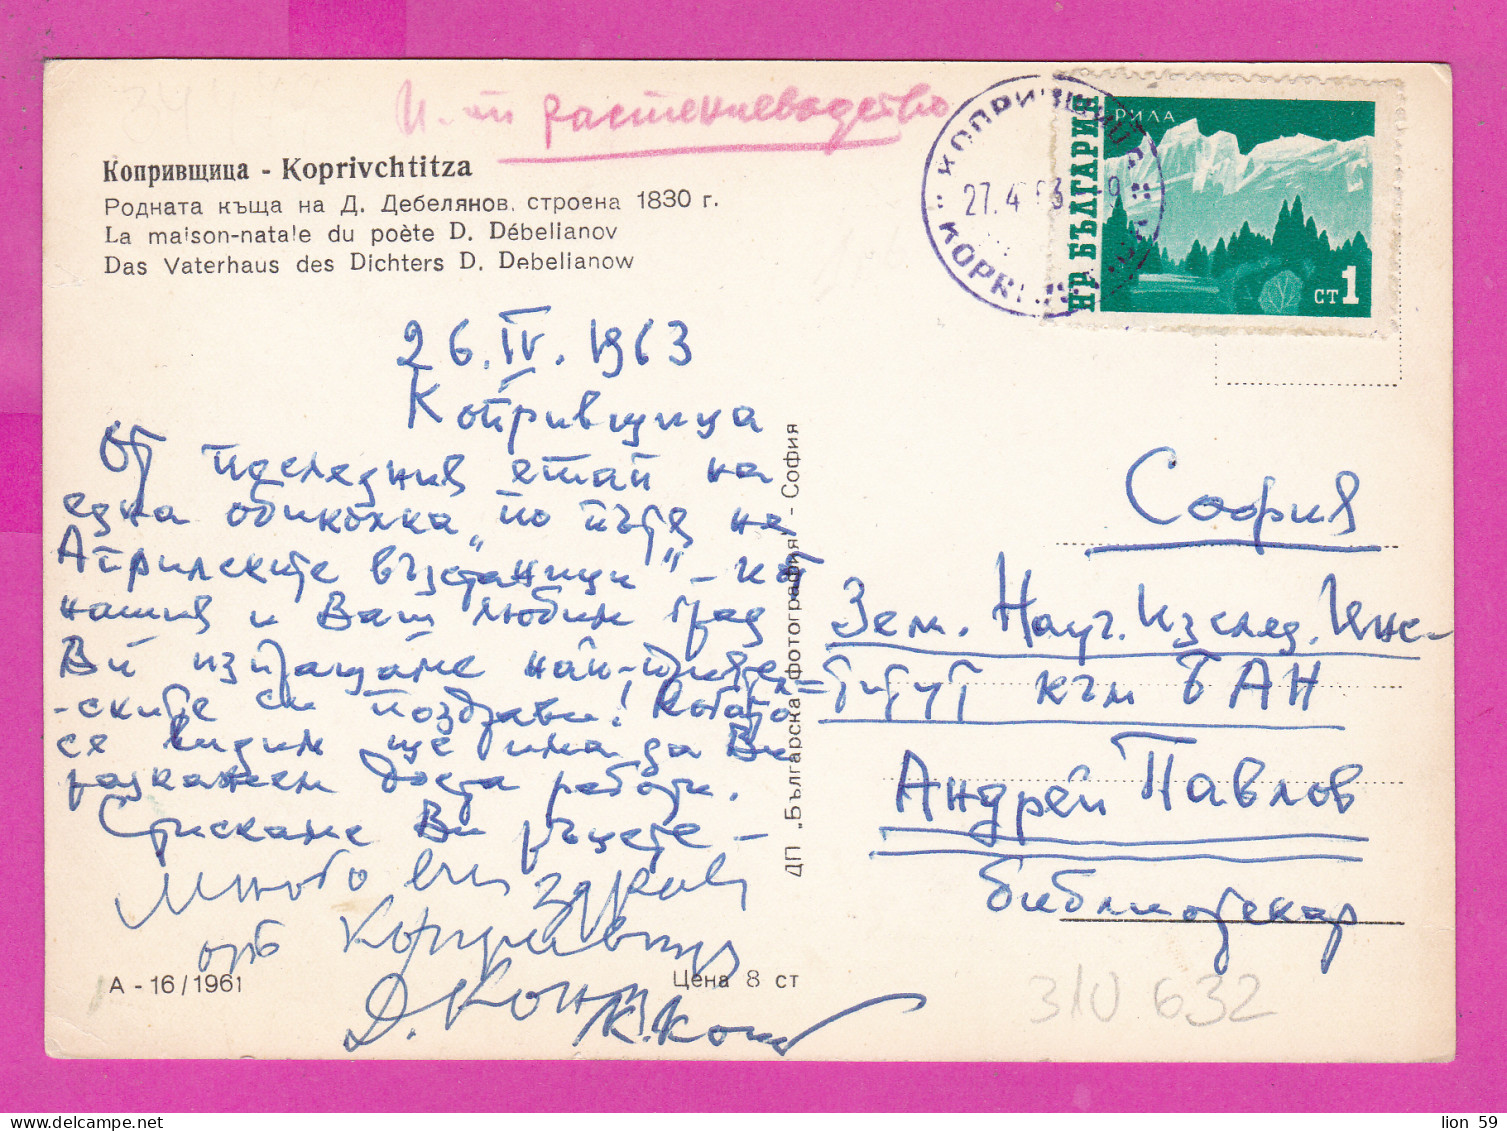 И-т растениевъдство
Копривщица - Koprivchtitza
Родната къща на Д. Дебелянов, строена 1830 г.
La maison-natale du poète D. Débelianov
Das Vaterhaus des Dichters D. Debelianow
КОПРИВЩИЦА
27.4 63 -9
НР БЪЛГАРИЯ
РИЛА
СТ 1
26.IV.1963
Копривщица
От последния етап на
една обиколка „по пътя на
Априлските въстаници" - от
нашия и Ваш любим град
Ви изпращаме най-прияте-
-ските си поздрави! Когато
се видим ще има да Ви
разкажем доста работи.
Стискаме Ви ръцете -
Много
здраве
от Копривщица
Д.
К.
ДП „Българска фотография" - София
София
Зем. Науч. Изслед. Инс-
титут към БАН
Андрей Павлов
библиотекар
А - 16/1961
Цена 8 ст
310 632
lion 59